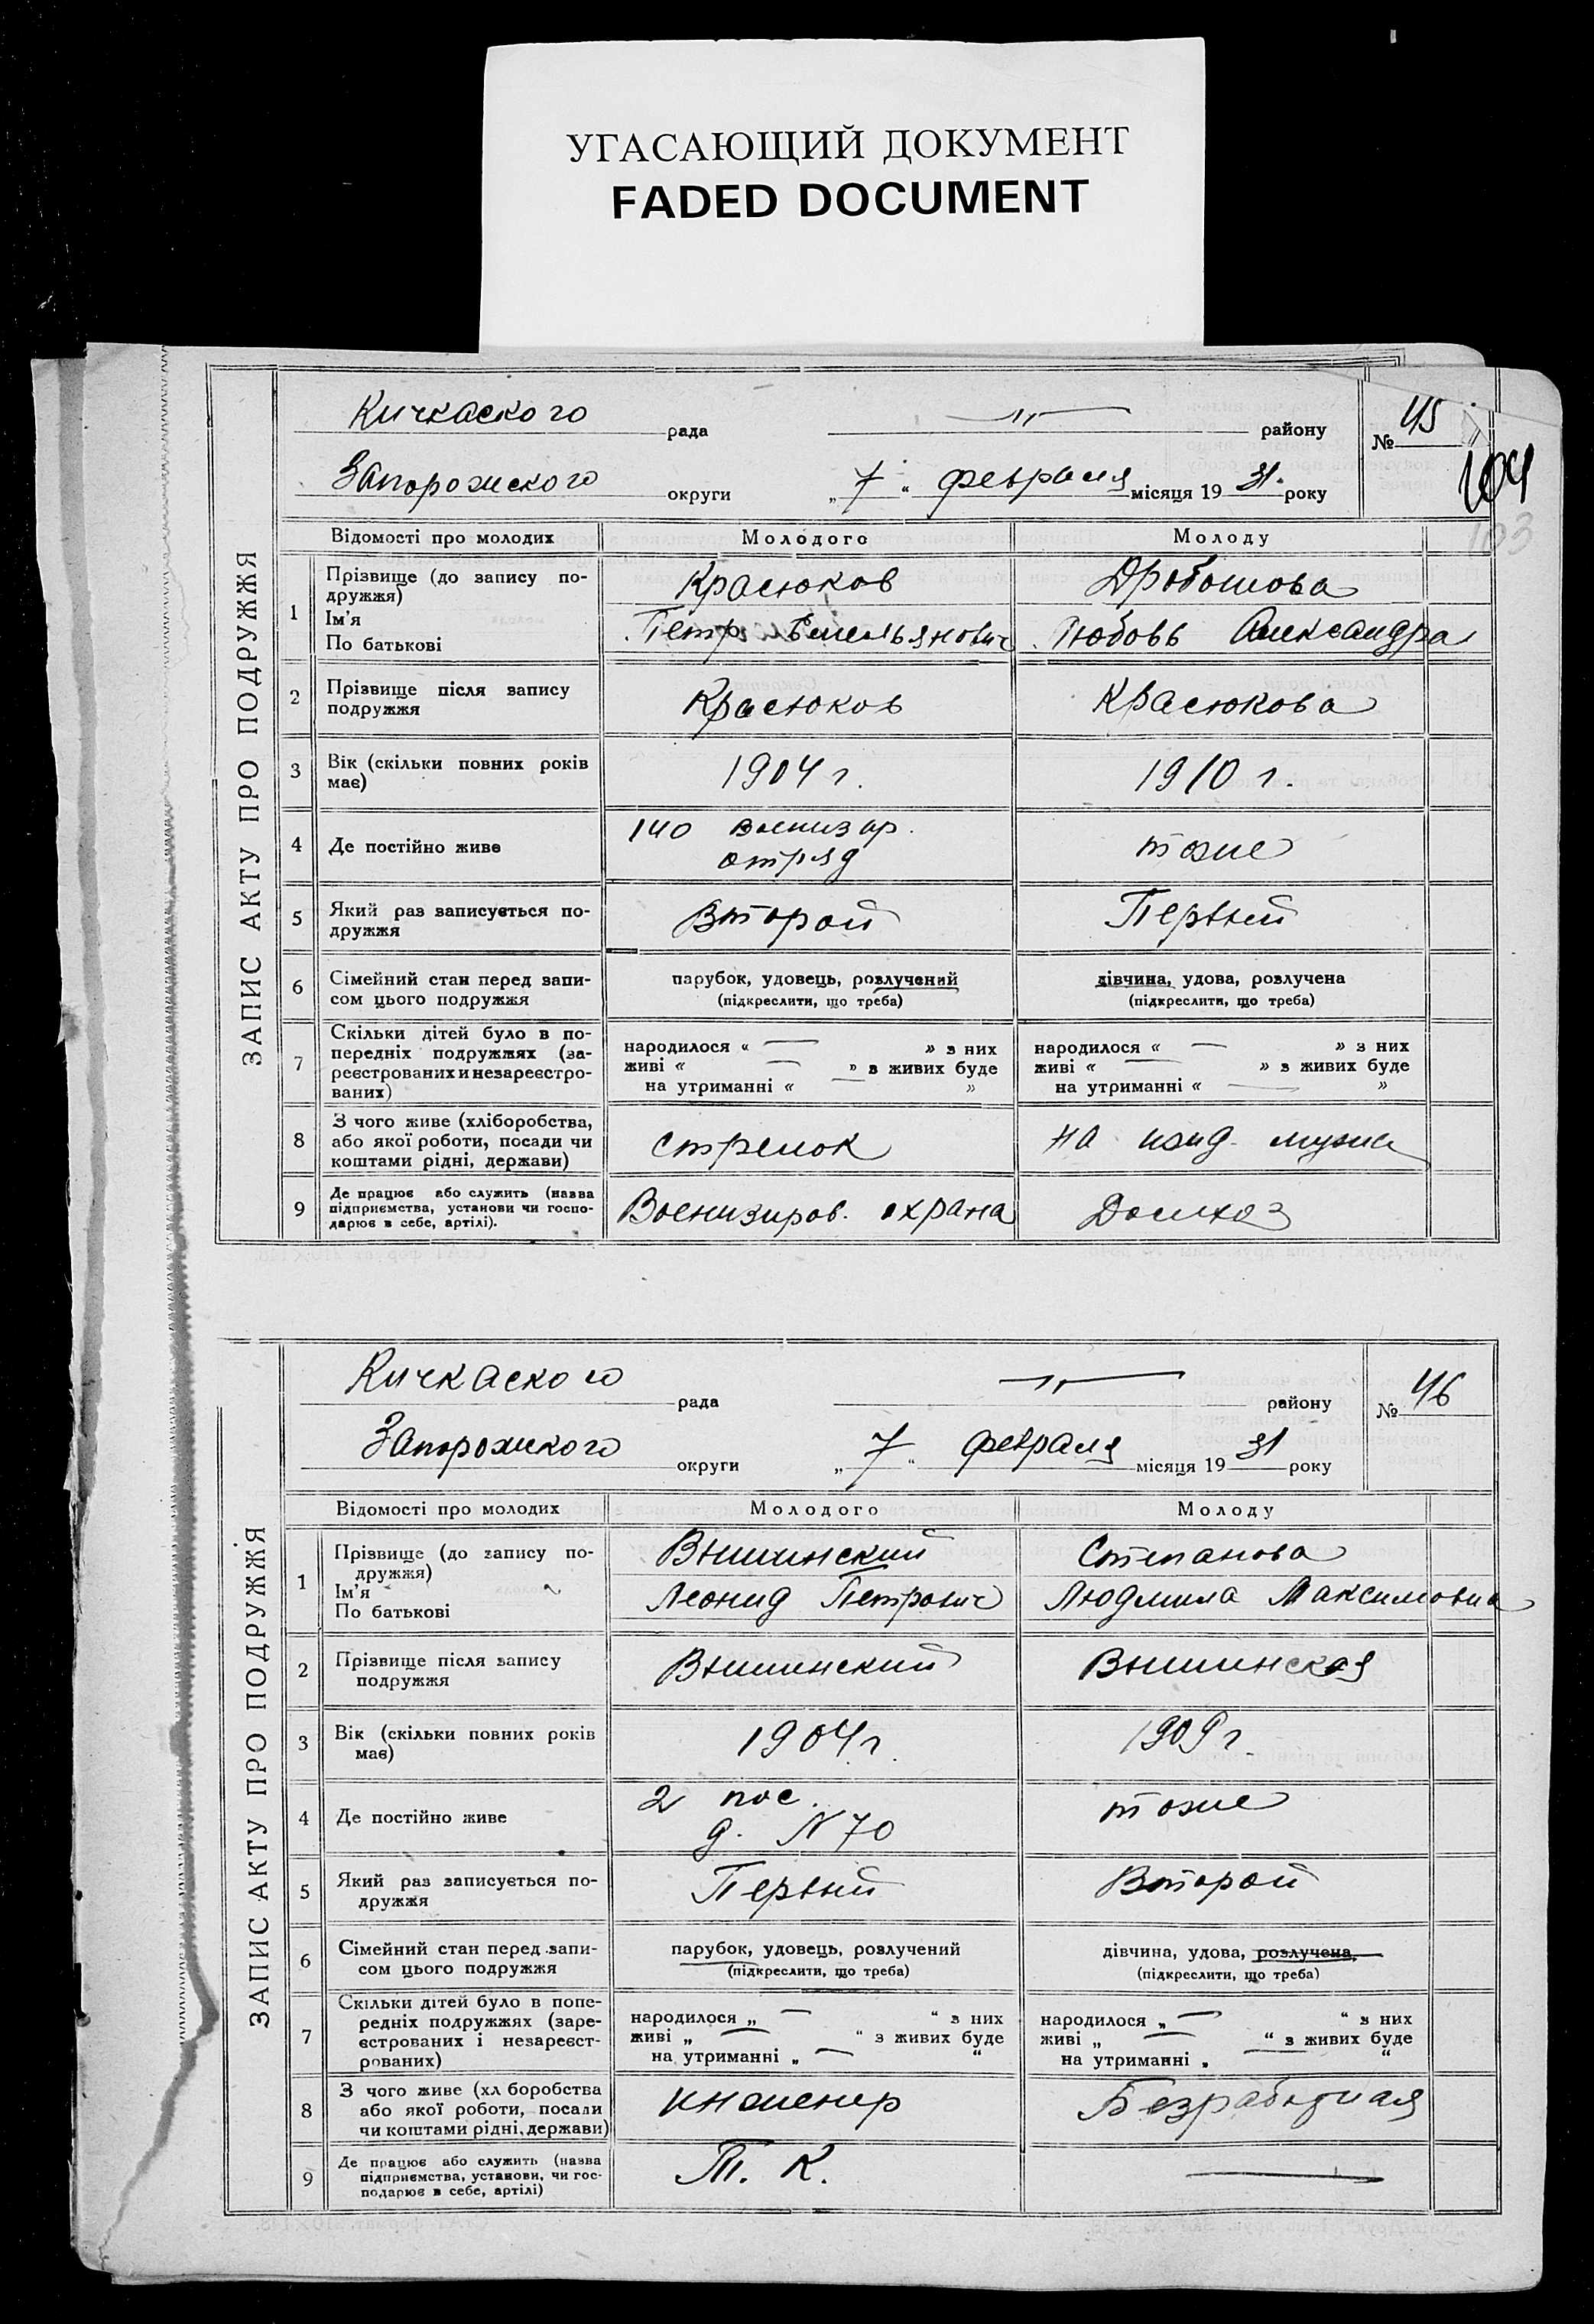 УГАСАЮЩИЙ ДОКУМЕНТ
FADED DOCUMENT
ЗАПИС АКТУ ПРО ПОДРУЖЖЯ
Кичкаского рада району № 45
Запорожского округи „7“ февраля місяця 19 31. року
104
103
Відомості про молодих Молодого Молоду
1 Прізвище (до запису по-
дружжя)
Ім'я
По батькові
Красюков Дробошова
Петр Емельянович Любовь Александра
2 Прізвище після запису
подружжя
Красюков Красюкова
3 Вік (скільки повних років
має)
1904 г. 1910 г.
4 Де постійно живе
140 военизир.
отряд
тоже
5 Який раз записується по-
дружжя
Второй Первый
6 Сімейний стан перед запи-
сом цього подружжя
парубок, удовець, розлучений
(підкреслити, що треба)
дівчина, удова, розлучена
(підкреслити, що треба)
7 Скільки дітей було в по-
передніх подружжях (за-
реєстрованих и незареєстро-
ваних)
народилося « » з них
живі « » в живих буде
на утриманні « »
народилося « » з них
живі « » з живих буде
на утриманні « »
8 З чого живе (хліборобства,
або якої роботи, посади чи
коштами рідні, держави)
стрелок
на ижд. мужа
9 Де працює або служить (назва
підприємства, установи чи госпо-
дарює в себе, артілі).
Военизиров. охрана
Домхоз
ЗАПИС АКТУ ПРО ПОДРУЖЖЯ
Кичкаского рада району № 46
Запорожского округи „7“ февраля місяця 19 31 року
Відомості про молодих Молодого Молоду
1 Прізвище (до запису по-
дружжя)
Ім'я
По батькові
Вышинский Степанова
Леонид Петрович Людмила Максимовна
2 Прізвище після запису
подружжя
Вышинский Вышинская
3 Вік (скільки повних років
має)
1904 г. 1909 г.
4 Де постійно живе
2 пос.
д. N 70
тоже
5 Який раз записується по-
дружжя
Первый Второй
6 Сімейний стан перед запи-
сом цього подружжя
парубок, удовець, розлучений
(підкреслити, що треба)
дівчина, удова, розлучена,
(підкреслити, що треба)
7 Скільки дітей було в попе-
редніх подружжях (заре-
єстрованих і незареєст-
рованих)
народилося „ “ з них
живі „ “ з живих буде
на утриманні „ “
народилося „ “ з них
живі „ “ з живих буде
на утриманні „ “
8 З чого живе (хл боробства
або якої роботи, посади
чи коштами рідні, держави)
инженер
Безработная
9 Де працює або служить (назва
підприємства, установи, чи гос-
подарює в себе, артілі)
Т. К.